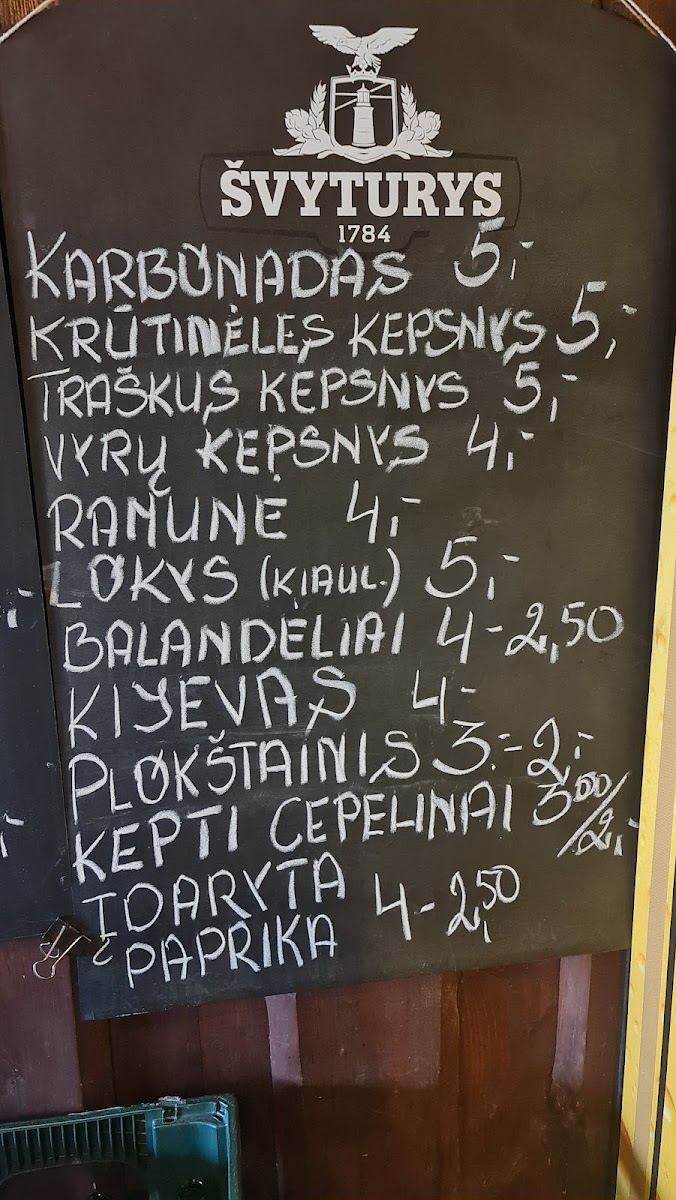 ŠVYTURYS
1784
KARBŪNADAS 5,-
KRŪTINĖLES KEPSNYS 5,-
TRAŠKUS KEPSNYS 5,-
VYRŲ KEPSNYS 4,-
RAMUNĖ 4,-
LOKYS (KIAUL.) 5,-
BALANDĖLIAI 4-2,50
KIJEVAS 4-
PLOKŠTAINIS 3.- 2,-
KEPTI CEPELINAI 3,00/2,-
ĮDARYTA 4-2,50
PAPRIKA